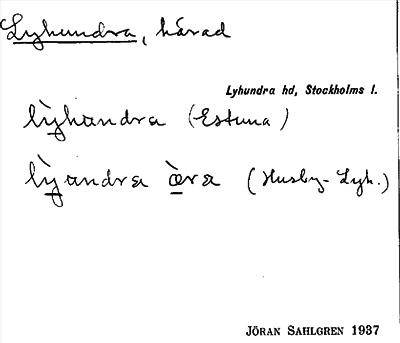 Lyhundra, härad
Lyhundra hd, Stockholms l.
lỳhandra (Estuna)
lỳandra æ̀ra (Husby-Lyh.)
JÖRAN SAHLGREN 1937